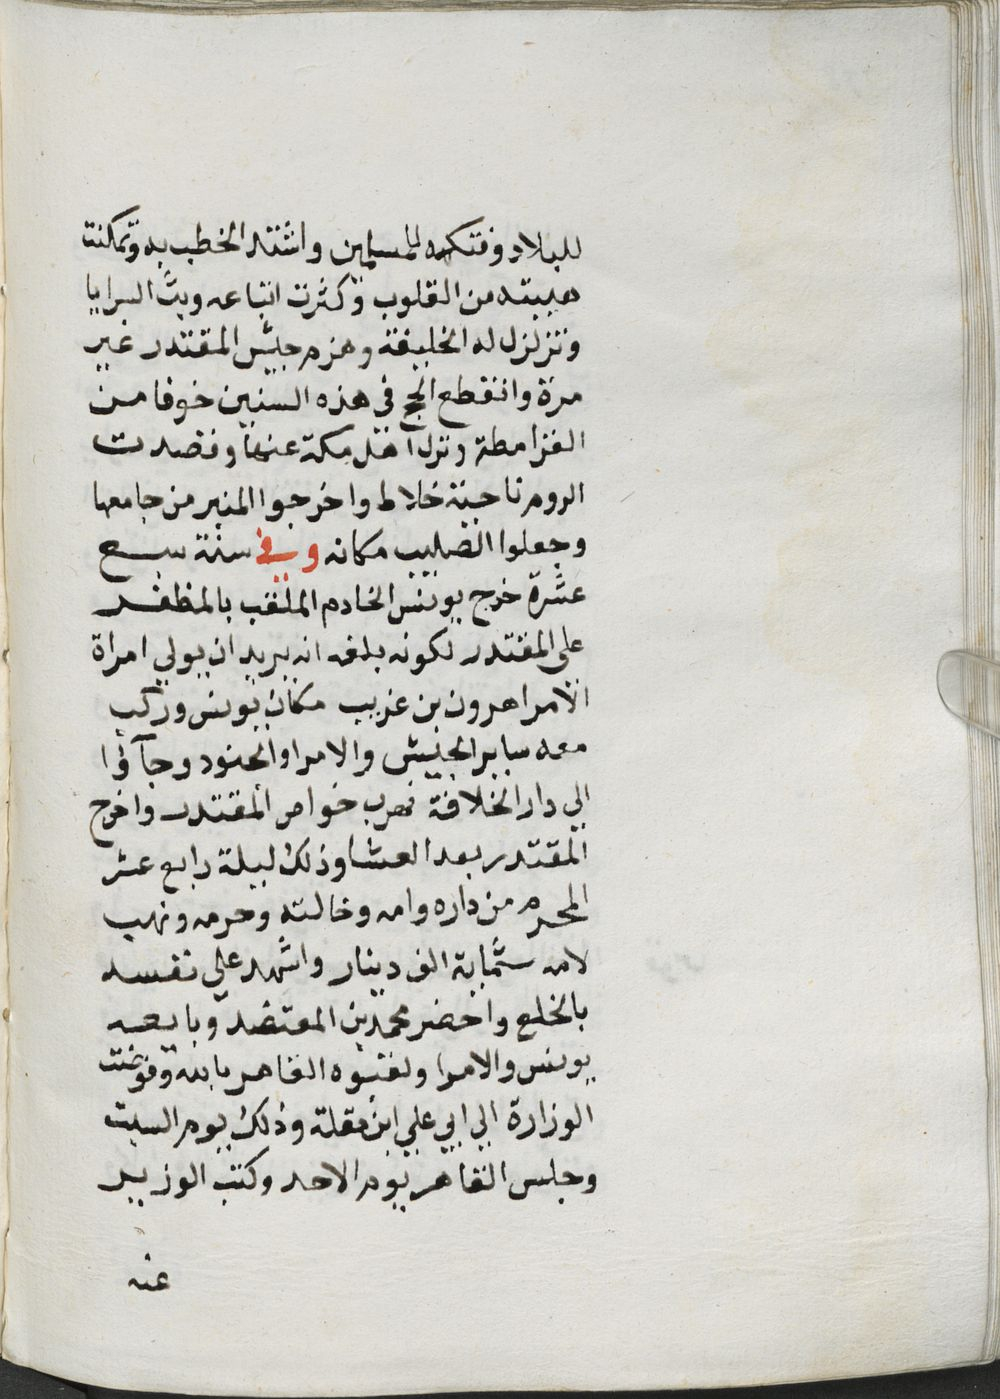 للبلاد وفتكه للمسلمين واشتد الخطب به وتمكنت
هيبته من القلوب وكثرت اتباعه وبث السرايا
وتزلزل له الخليفة وهزم جيش المقتدر غير
مرة وانقطع الحج في هذه السنين خوفا من
القرامطة ونزل اهل مكة عنها وقصدت
الروم ناحية خلاط واخرجوا المنبر من جامعها
وجعلوا الصليب مكانه وفي سنة سبع
عشرة خرج يونس الخادم الملقب بالمظفر
على المقتدر لكونه بلغه انه يريد ان يولي امراة
الامرا هرون بن غريب مكان يونس وركب
معه ساير الجيش والامرا والجنود وجآؤا
الي دار الخلافة فهرب خواص المقتدر واخرج
المقتدر بعد العشا وذلك ليلة رابع عشر
المحرم من داره وامه وخالته وحرمه ونهب
لامه ستماية الف دينار واشهد علي نفسه
بالخلع واحضر محمد بن المعتضد وبايعه
يونس والامرا ولقبوه القاهر بالله وفوضت
الوزارة الي ابي علي ابن مقلة وذلك يوم السبت
وجلس القاهر يوم الاحد وكتب الوزير
عنه